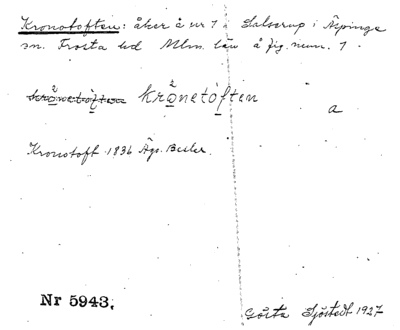 Kronotoften: åker å nr 1 i Salserup i Äspinge
sn. Frosta hd Mlm. län å fig. num. 1.
krònetòften
a
Kronotoft 1836 Äg. Beskr.
Nr 5943.
Gösta Sjöstedt 1927